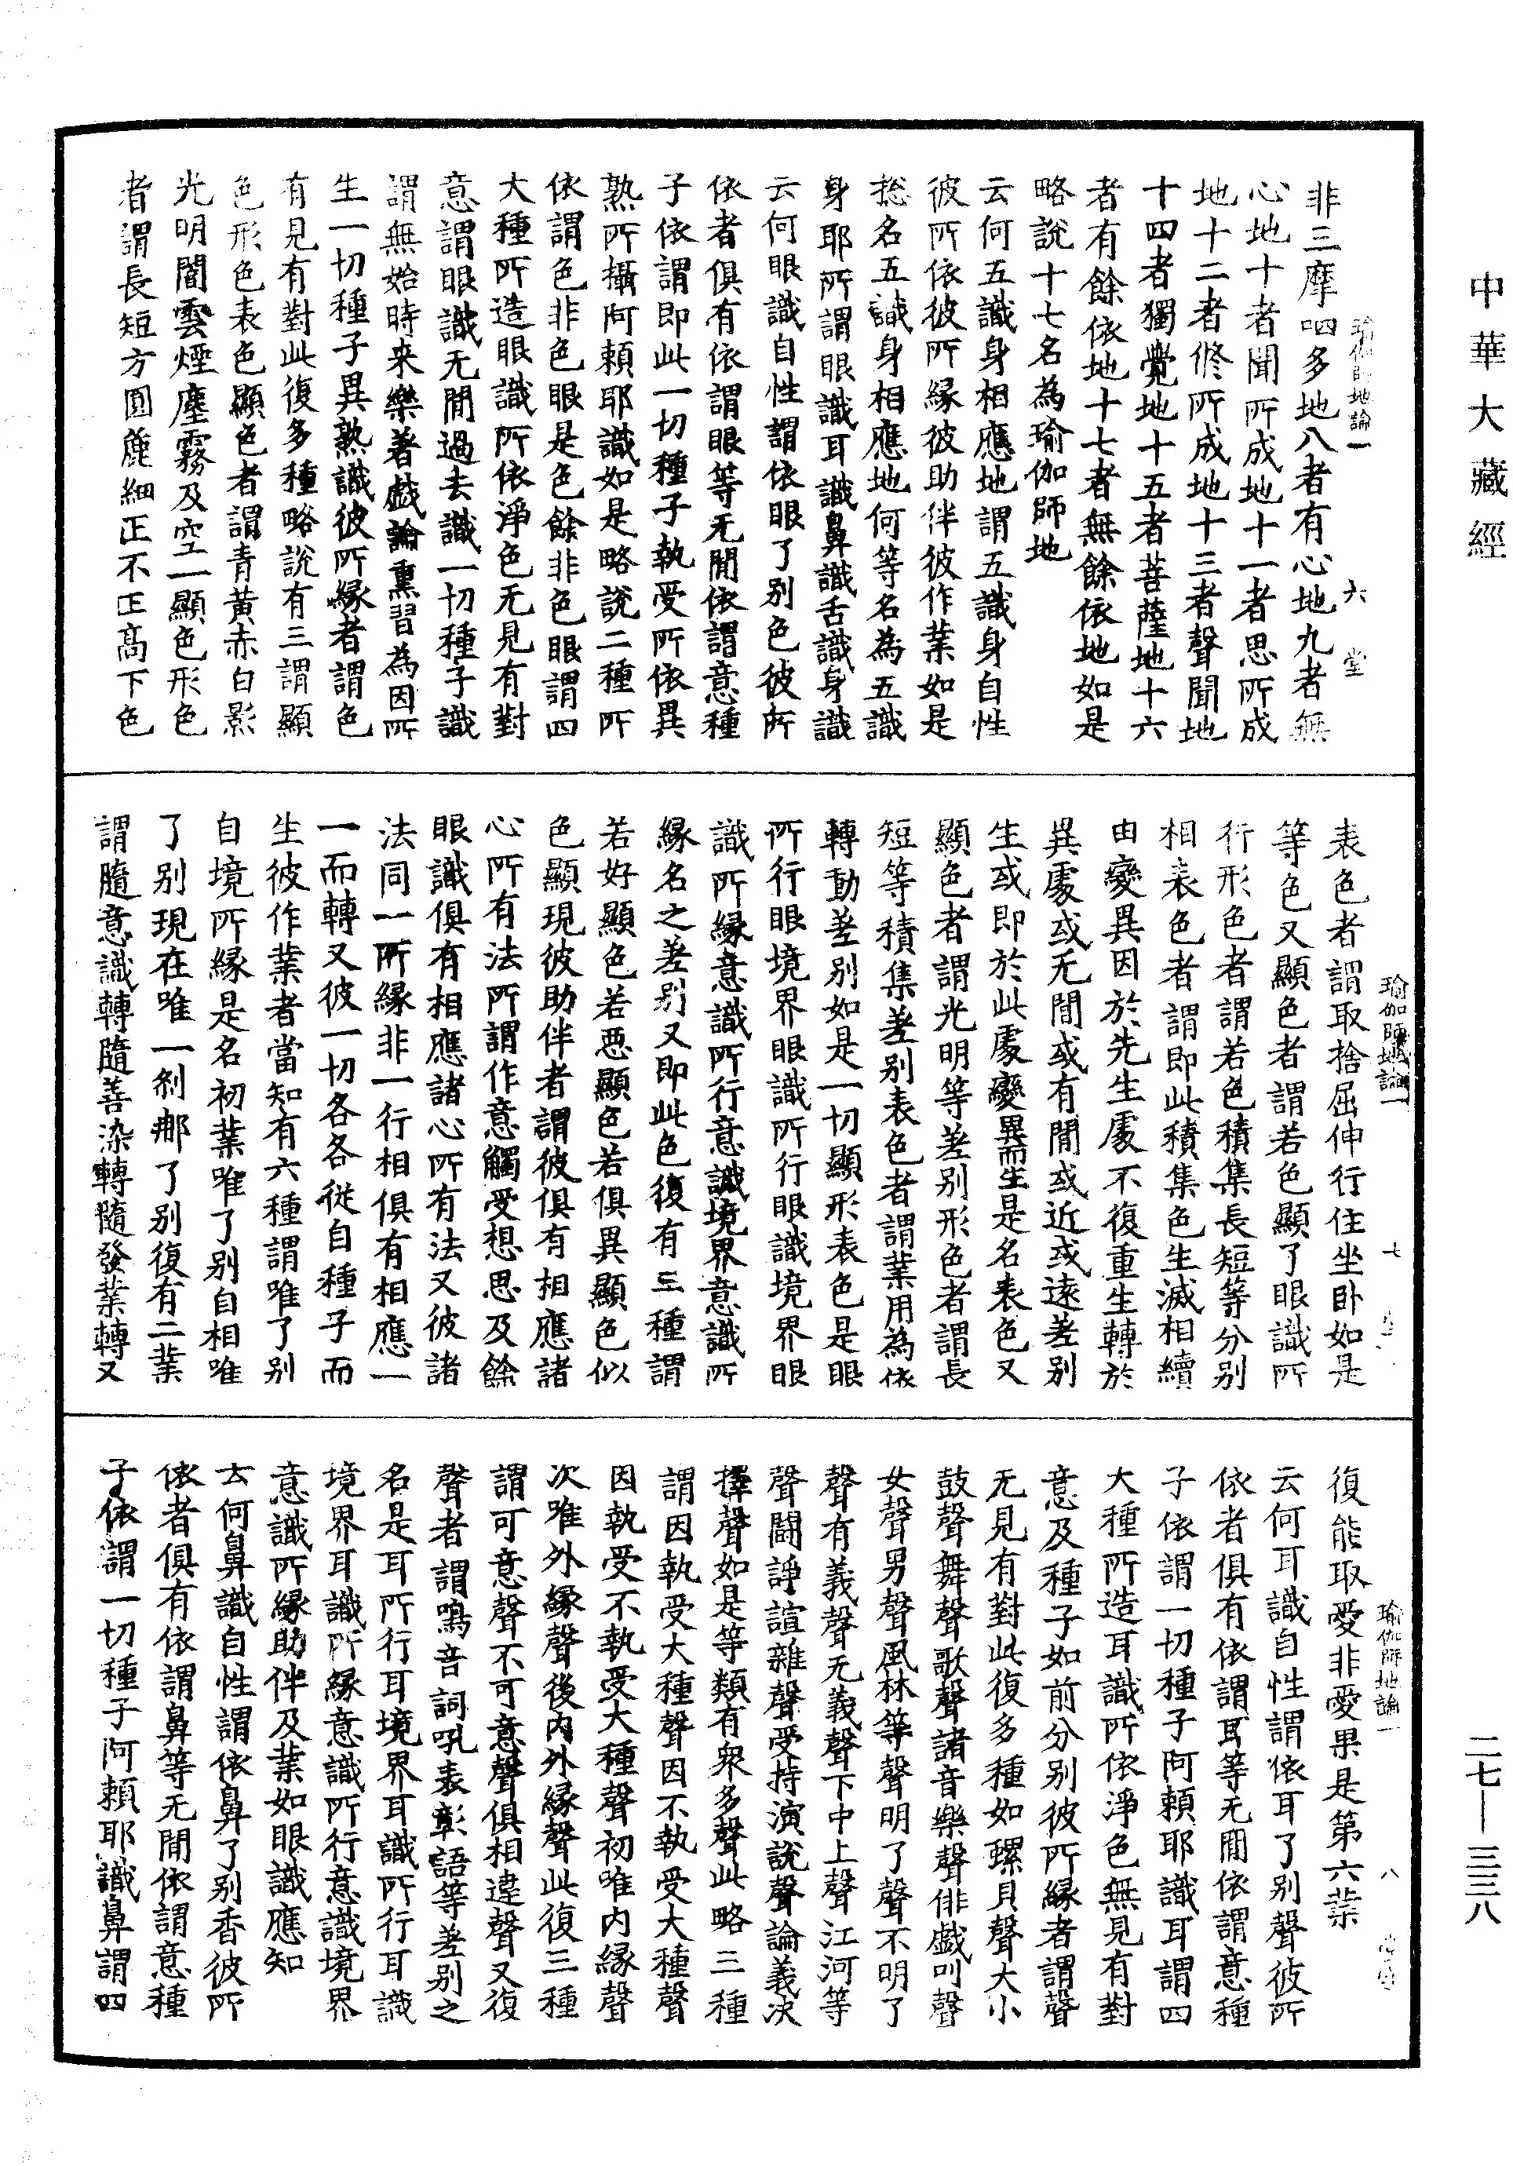 中華大藏經
二七—三三八
瑜伽師地論一 六 堂
非三摩呬多地八者有心地九者無
心地十者聞所成地十一者思所成
地十二者修所成地十三者聲聞地
十四者獨覺地十五者菩薩地十六
者有餘依地十七者無餘依地如是
略說十七名為瑜伽師地
云何五識身相應地謂五識身自性
彼所依彼所緣彼助伴彼作業如是
捴名五識身相應地何等名為五識
身耶所謂眼識耳識鼻識舌識身識
云何眼識自性謂依眼了別色彼所
依者俱有依謂眼等无間依謂意種
子依謂即此一切種子執受所依異
熟所攝阿賴耶識如是略說二種所
依謂色非色眼是色餘非色眼謂四
大種所造眼識所依淨色无見有對
意謂眼識无間過去識一切種子識
謂無始時來樂著戲論熏習為因所
生一切種子異熟識彼所緣者謂色
有見有對此復多種略說有三謂顯
色形色表色顯色者謂青黃赤白影
光明闇雲煙塵霧及空一顯色形色
者謂長短方圓麁細正不正高下色
瑜伽師地論一 七
表色者謂取捨屈伸行住坐卧如是
等色又顯色者謂若色顯了眼識所
行形色者謂若色積集長短等分別
相表色者謂即此積集色生滅相續
由變異因於先生處不復重生轉於
異處或无間或有間或近或遠差別
生或即於此處變異而生是名表色又
顯色者謂光明等差別形色者謂長
短等積集差別表色者謂業用為依
轉動差別如是一切顯形表色是眼
所行眼境界眼識所行眼識境界眼
識所緣意識所行意識境界意識所
緣名之差別又即此色復有三種謂
若好顯色若惡顯色若俱異顯色似
色顯現彼助伴者謂彼俱有相應諸
心所有法所謂作意觸受想思及餘
眼識俱有相應諸心所有法又彼諸
法同一所緣非一行相俱有相應一
一而轉又彼一切各各從自種子而
生彼作業者當知有六種謂唯了別
自境所緣是名初業唯了別自相唯
了別現在唯一剎那了別復有二業
謂隨意識轉隨善染轉隨發業轉又
瑜伽師地論一 八
復能取愛非愛果是第六業
云何耳識自性謂依耳了別聲彼所
依者俱有依謂耳等无間依謂意種
子依謂一切種子阿賴耶識耳謂四
大種所造耳識所依淨色無見有對
意及種子如前分別彼所緣者謂聲
无見有對此復多種如螺貝聲大小
鼓聲舞聲歌聲諸音樂聲俳戲叫聲
女聲男聲風林等聲明了聲不明了
聲有義聲无義聲下中上聲江河等
聲鬪諍諠雜聲受持演說聲論義決
擇聲如是等類有衆多聲此略三種
謂因執受大種聲因不執受大種聲
因執受不執受大種聲初唯內緣聲
次唯外緣聲後內外緣聲此復三種
謂可意聲不可意聲俱相違聲又復
聲者謂鳴音詞吼表彰語等差別之
名是耳所行耳境界耳識所行耳識
境界耳識所緣意識所行意識境界
意識所緣助伴及業如眼識應知
云何鼻識自性謂依鼻了別香彼所
依者俱有依謂鼻等无間依謂意種
子依謂一切種子阿賴耶識鼻謂四